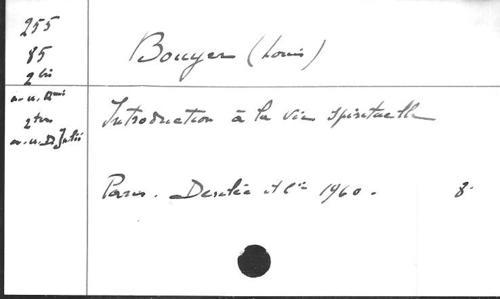 255
85
2 bis
2 ter
Bouyer (Louis)
Introduction à la vie spirituelle
Paris. Desclée et Cie 1960. 8°